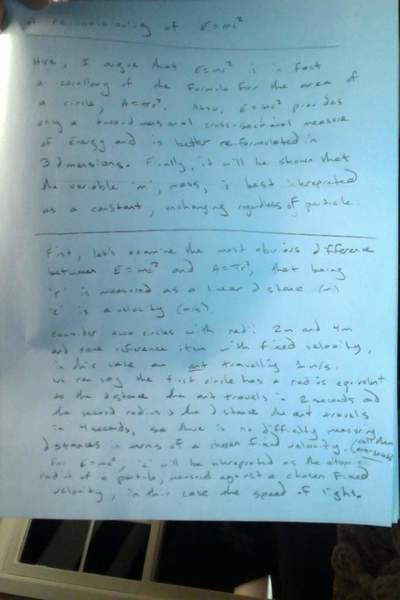 A reconsidering of E=mc²
Here, I argue that E=mc² is in fact
a corollary of the formula for the area of
a circle, A=πr². Also, E=mc² provides
only a two-dimensional cross-sectional measure
of Energy and is better re-formulated in
3 dimensions. Finally, it will be shown that
the variable 'm', mass, is best interpreted
as a constant, unchanging regardless of particle.
First, let's examine the most obvious difference
between E=mc² and A=πr², that being
'r' is measured as a linear distance (m)
'c' is a velocity (m/s).
Consider two circles with radii 2m and 4m
and some reference item with fixed velocity,
in this case an ant travelling 1 m/s.
we can say the first circle has a radius equivalent
to the distance the ant travels in 2 seconds and
the second radius the distance the ant travels
in 4 seconds, so there is no difficulty measuring
distances in terms of a chosen fixed velocity. (call them
For E=mc², 'c' will be interpreted as the atomic
radius of a particle, measured against a chosen fixed
velocity, in this case the speed of light.